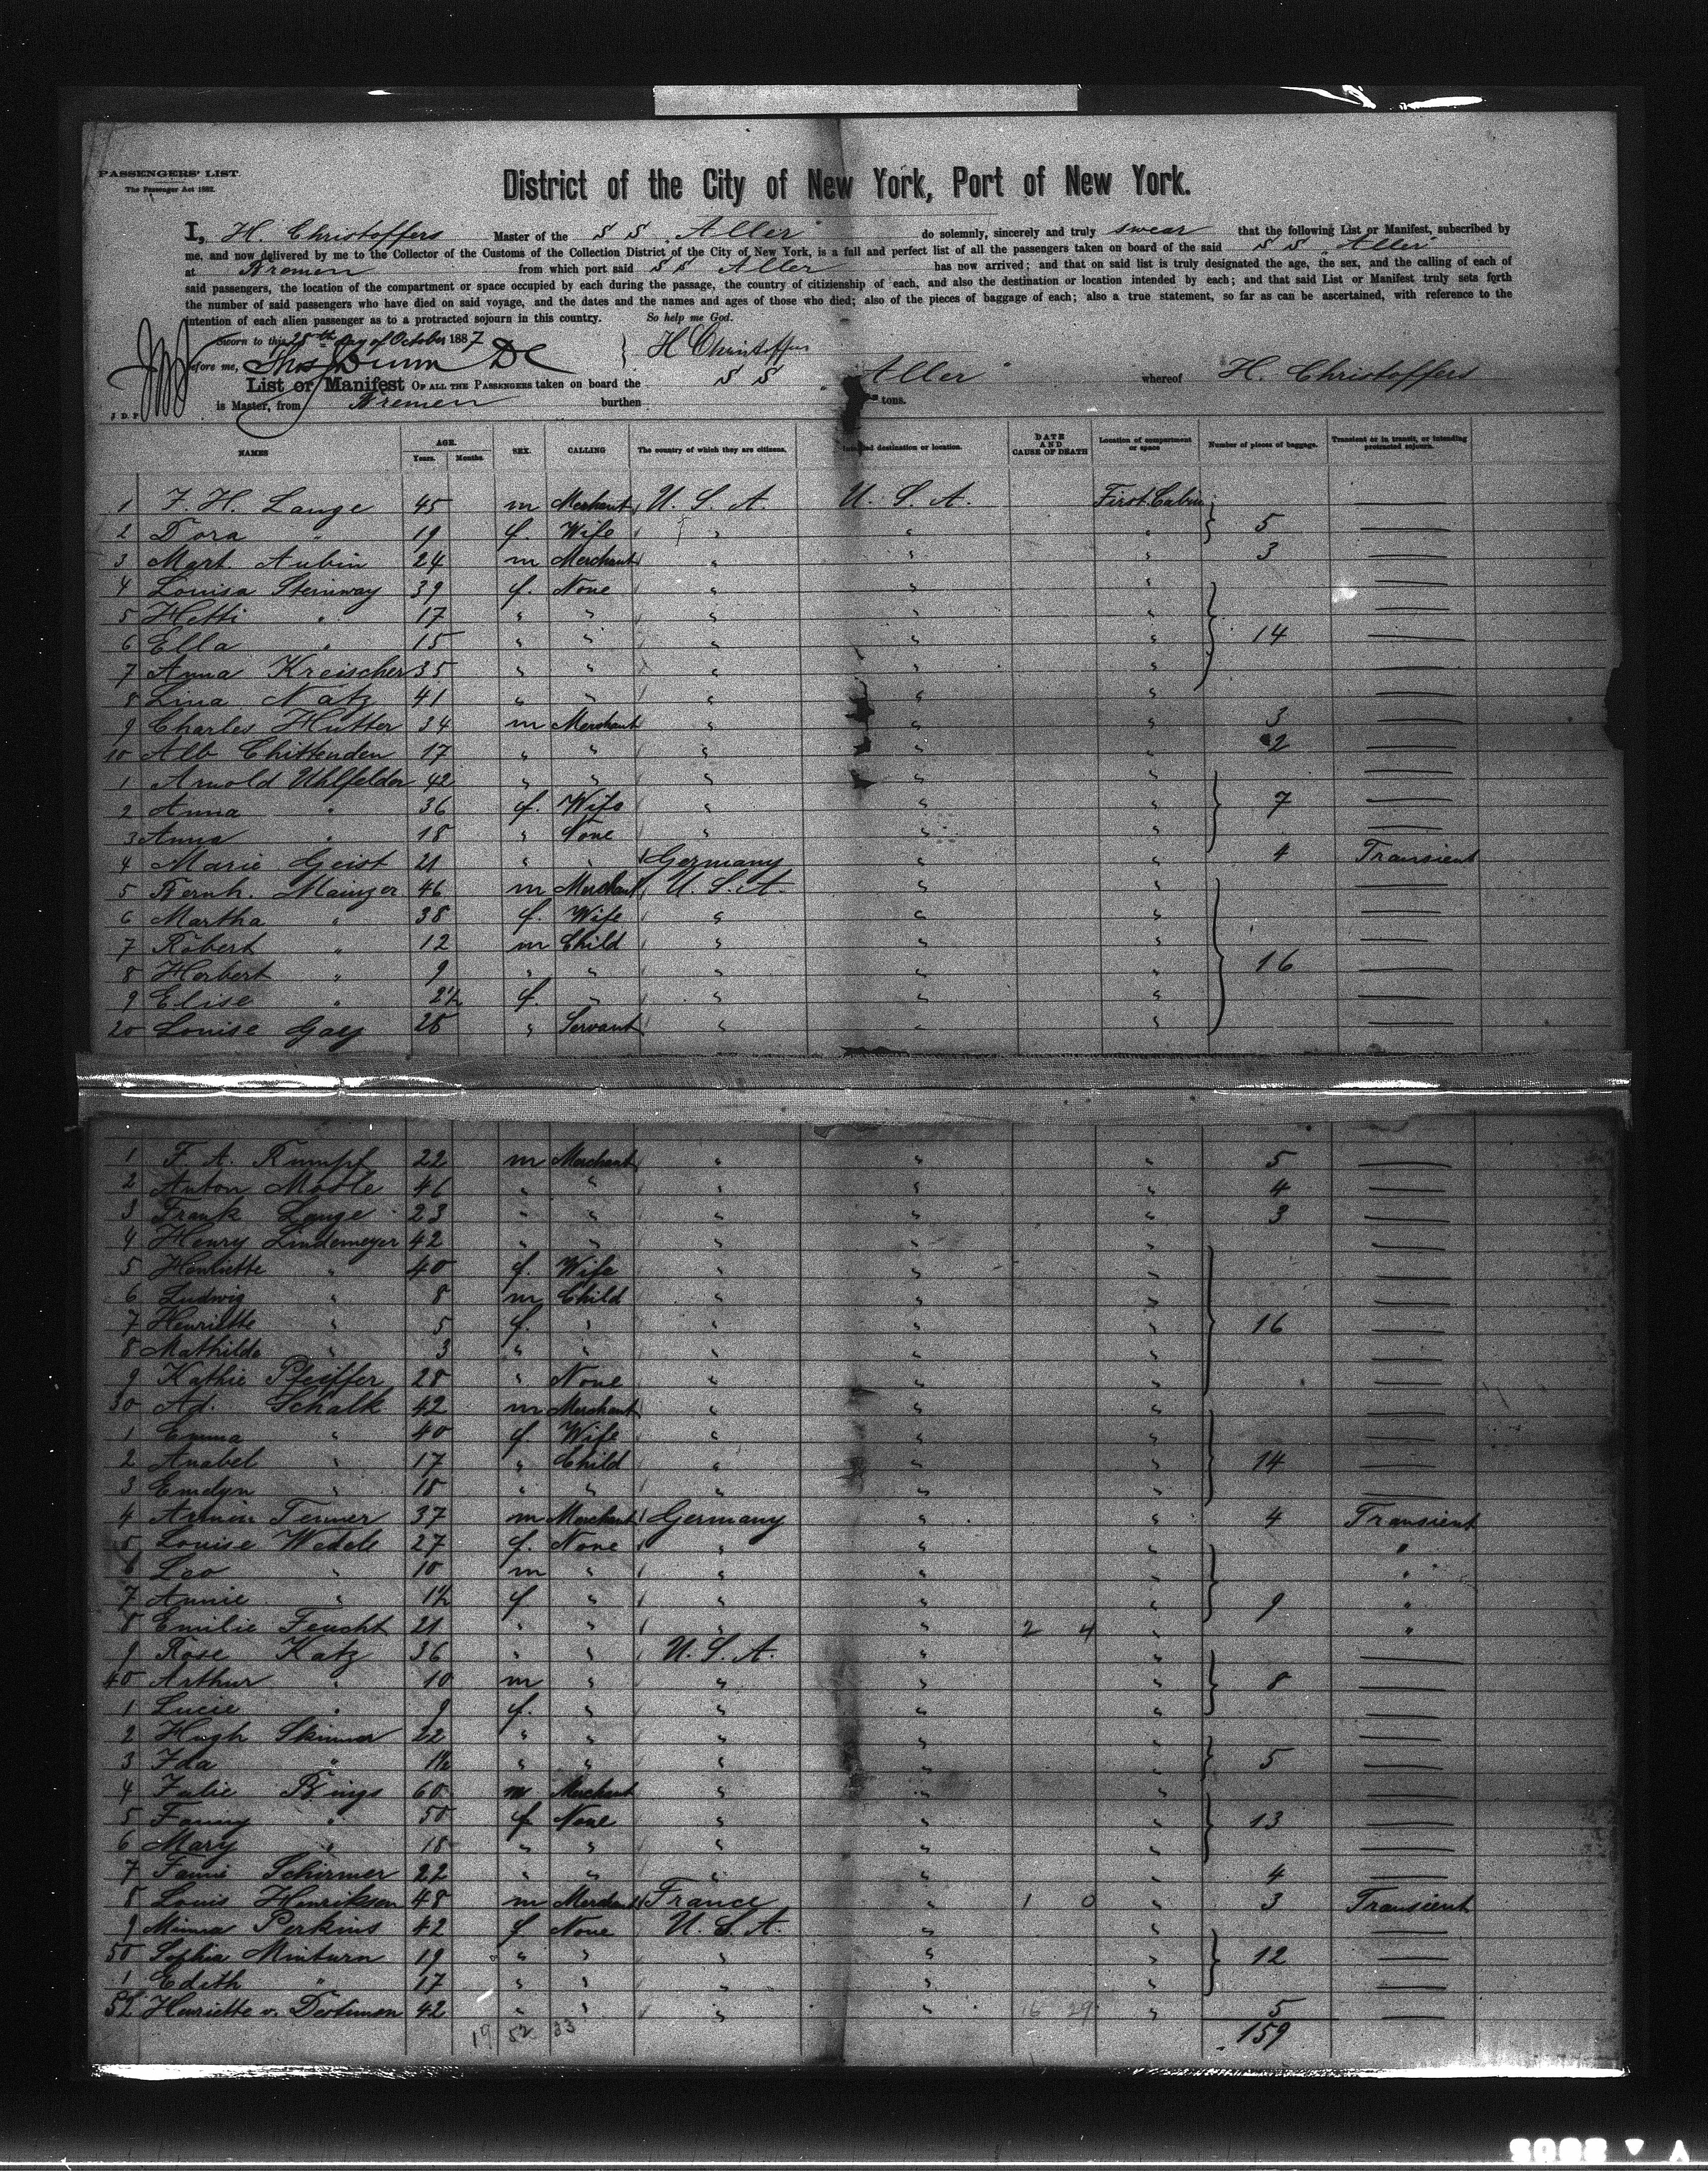 PASSENGERS' LIST.
The Passenger Act 1882.
District of the City of New York, Port of New York.
I, H. Christoffers Master of the S S "Aller" do solemnly, sincerely and truly swear that the following List or Manifest, subscribed by
me, and now delivered by me to the Collector of the Customs of the Collection District of the City of New York, is a full and perfect list of all the passengers taken on board of the said S S "Aller"
at Bremen from which port said S S Aller has now arrived; and that on said list is truly designated the age, the sex, and the calling of each of
said passengers, the location of the compartment or space occupied by each during the passage, the country of citizienship of each, and also the destination or location intended by each; and that said List or Manifest truly sets forth
the number of said passengers who have died on said voyage, and the dates and the names and ages of those who died; also of the pieces of baggage of each; also a true statement, so far as can be ascertained, with reference to the
intention of each alien passenger as to a protracted sojourn in this country. So help me God.
Sworn to this 28th day of October 1887 } H Christoffers
Before me, Thos Dunn DC
List or Manifest OF ALL THE PASSENGERS taken on board the S S "Aller" whereof H. Christoffers
is Master, from Bremen burthen tons.
J D P
NAMES AGE. Years. Months. SEX. CALLING The country of which they are citizens. Intended destination or location. DATE AND CAUSE OF DEATH Location of compartment or space Number of pieces of baggage. Transient or in transit, or intending protracted sojourn.
1 F. H. Lange 45 m Merchant U. S. A. U. S. A. First Cabin
2 Dora " 19 f. Wife " " " 5
3 Mart Aubin 24 m Merchant " " " 3
4 Louisa Steinway 39 f. None " " "
5 Hetti " 17 " " " " "
6 Ella " 15 " " " " " 14
7 Anna Kreischer 35 " " " " "
8 Lina Natz 41 " " " " "
9 Charles Hutter 34 m Merchant " " " 3
10 Alb Chittenden 17 " " " " " 2
1 Arnold Uhlfelder 42 " " " " "
2 Anna " 36 f. Wife " " " 7
3 Anna " 18 " None " " "
4 Marie Geist 21 " " Germany " " 4 Transient
5 Bernh. Mainzer 46 m Merchant U. S. A. " "
6 Martha " 38 f. Wife " " "
7 Robert " 12 m Child " " "
8 Herbert " 9 " " " " " 16
9 Elise " 2½ f. " " " "
20 Louise Gay 28 " Servant " " "
1 F. A. Rumpf 22 m Merchant " " " 5
2 Anton Mosle 46 " " " " " 4
3 Frank Lange 23 " " " " " 3
4 Henry Lindemeyer 42 " " " " "
5 Henriette " 40 f. Wife " " "
6 Ludwig " 8 m Child " " "
7 Henriette " 5 f. " " " " 16
8 Mathilde " 3 " " " " "
9 Kathie Pfeiffer 28 " None " " "
30 Ad. Schalk 42 m Merchant " " "
1 Emma " 40 f Wife " " "
2 Anabel " 17 " Child " " " 14
3 Emelyn " 18 " " " " "
4 Armin Tenner 37 m Merchant Germany " " 4 Transient
5 Louise Wedele 27 f. None " " " "
6 Leo " 10 m " " " " "
7 Annie " 1½ f " " " " 9 "
8 Emilie Feucht 21 " " " " 2 4 " "
9 Rose Katz 36 " " U. S. A. " "
40 Arthur " 10 m " " " " 8
1 Lucie " 9 f. " " " "
2 Hugh Skinner 22 " " " " "
3 Ida " " " " " " 5
4 Julie Bings 60 m Merchant " " "
5 Fanny " 50 f None " " " 13
6 Mary " 18 " " " " "
7 Fanni Schirmer 22 " " " " " 4
8 Louis Henriksen 48 m Merchant France " 1 0 " 3 Transient
9 Minna Perkins 42 f None U. S. A. " "
50 Sophia Minturn 19 " " " " " 12
1 Edith " 17 " " " " "
52 Henriette v. 42 " " " " 16 29 " 5
19 52 33 159